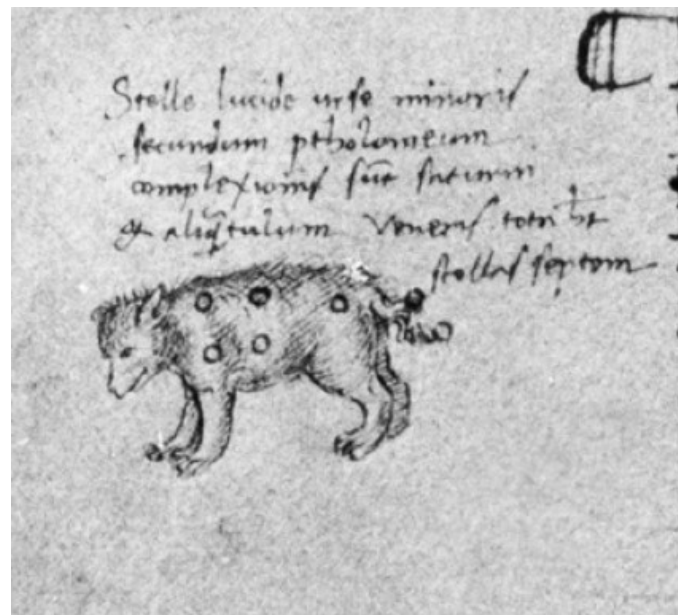 Stelle lucide urse minoris
secundum ptholomeum
complexionis sut saturni
& aliqtulum veneris totu ht
stellas septem